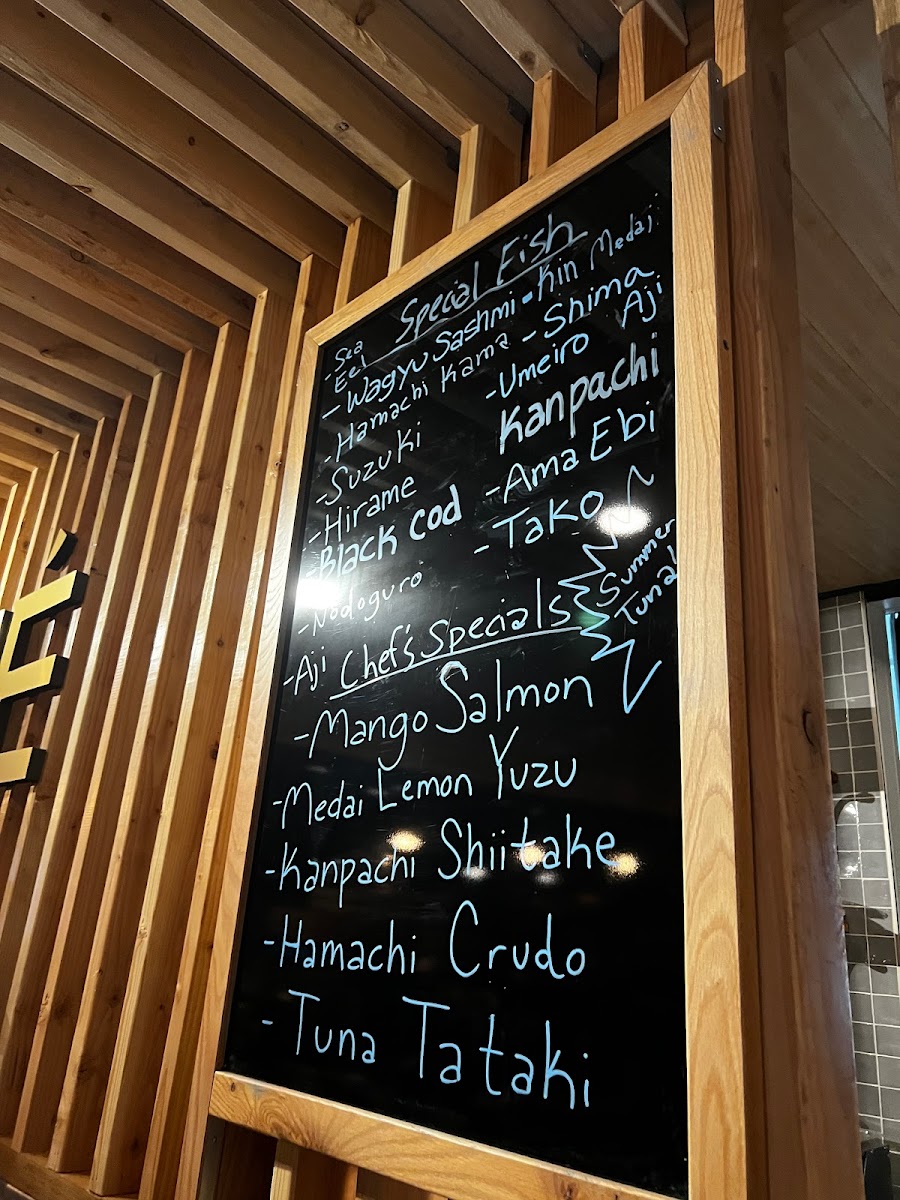 Special Fish
- Sea Eel
- Wagyu Sashmi
- Hamachi Kama
- Suzuki
- Hirame
Black Cod
- Nodoguro
- Aji
- Kin Medai
- Shima Aji
- Umeiro
Kanpachi
- Ama Ebi
- Tako
Summer
Tuna!
Chef's Specials
- Mango Salmon
- Medai Lemon Yuzu
- Kanpachi Shiitake
- Hamachi Crudo
- Tuna Tataki